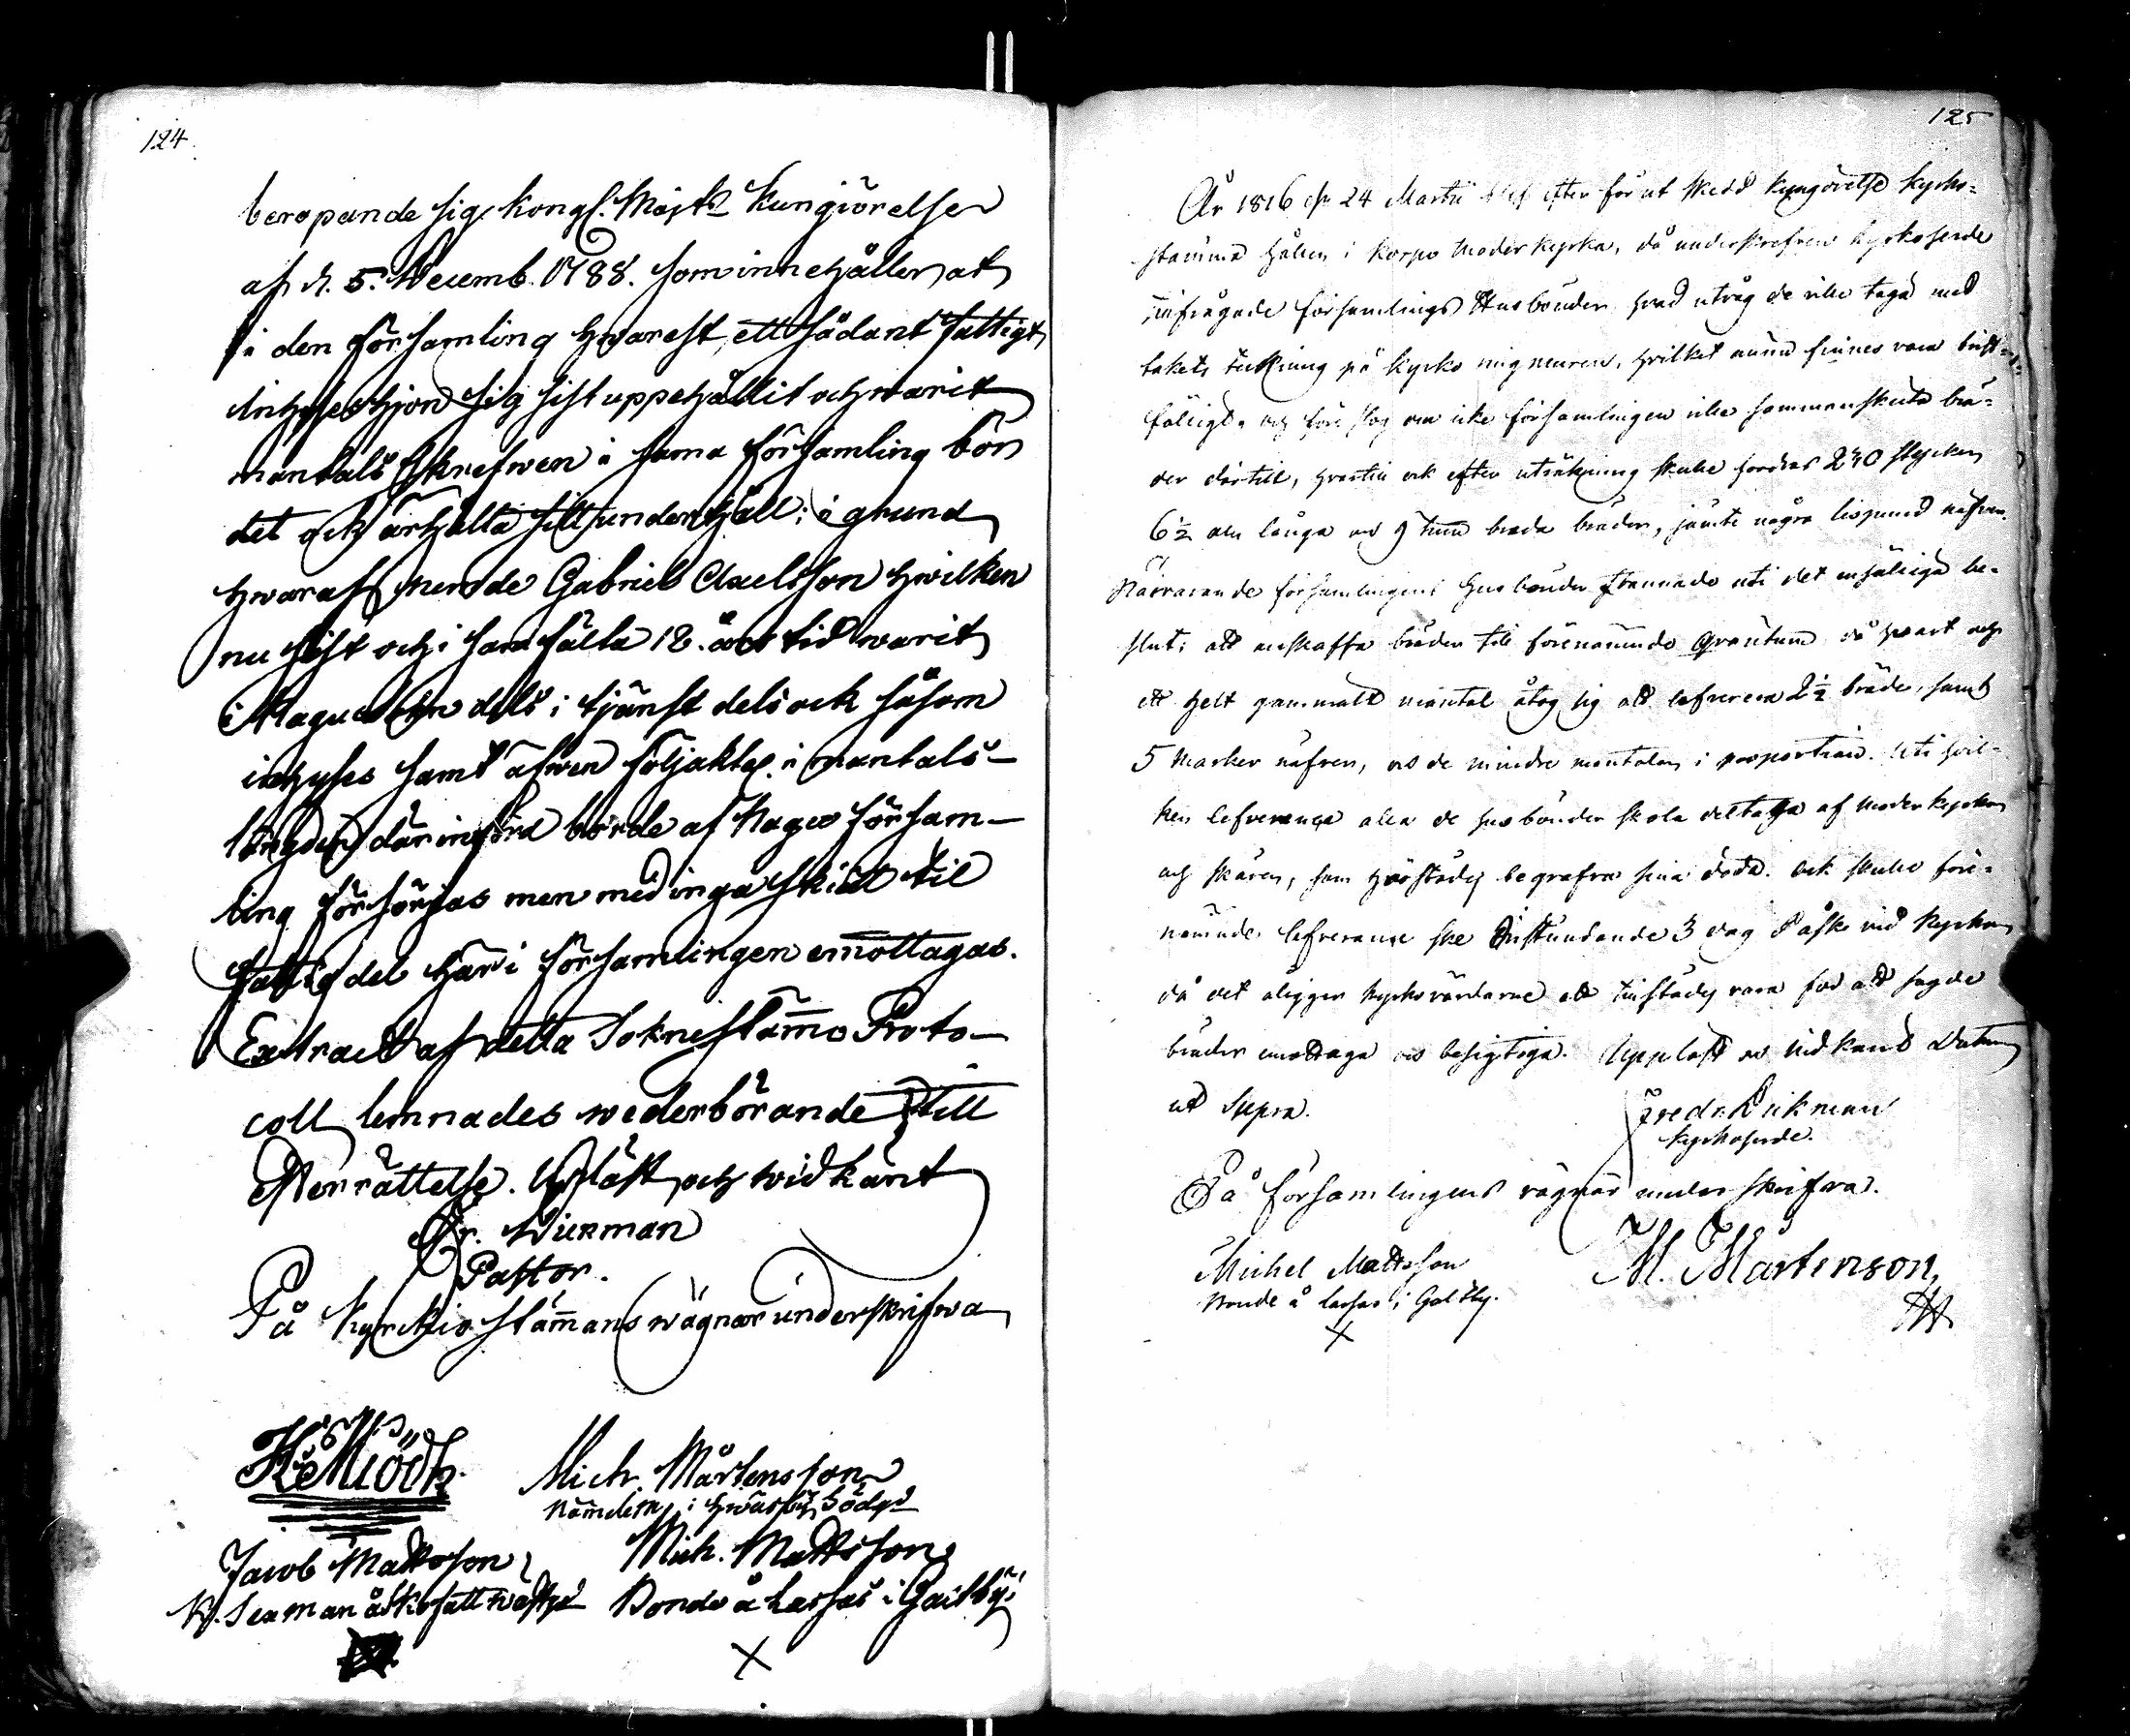 124.
beropande sig Kongl. Majts Kungiörelse
af d. 5. Decemb. 1788. som innehåller at
i den församling hwarest ett sådant fattigt
inhyses hjon sig sist uppehållit och warit
mantals skrefwen i sama församling bör
det ock ärhålla sitt underhåll; i grund
hwaraf nemde Gabriel Axelsson hwilken
nu sist och i samfälta 12. års tid warit
i Nagu dels i tjänst dels ock såsom
inhyses samt äfwen följaktel. i mantals-
längden därinförd borde af Nagu försam-
ling försörjas men med inga skiäl til
fattigdel här i församlingen emottagas.
Extract af detta Sokne stämo Proto-
coll lemnades wederbörande till
Efterrättelse. Upläst och widkänt
Fr. Wikman
Pastor.
På Kyrckio stämans wägnar underskrifwa
Mich. Mårtensson
Nämdem. i
Jacob Mattsson
Mich. Mattsson
Bonde å Lassas i Galtby
X
125
År 1816 d. 24 Martii blef efter förut skedd kyngörelse kyrko-
stämma hållen i Korpo Moderkyrka, då underskrefven kyrkoherde
tillfrågade församlings Husbönder hvad utväg de ville taga med
takets täckning på kyrko ringmuren, hvilket nu finnes vara brist-
fälligt, och före slog om icke församlingen ville sammanskiuta brä-
der dertill, hvartill ock efter uträkning skulle fordras 240 stycken
6½ aln långa och 9 tum breda bräder, jämte några lispund näfver.
Närvarande församlingens husbönder stannade uti det enhälliga be-
slut: att anskaffa bräder till förenämnde quantum då hvart och
ett helt gammalt mantal åtog sig att leverera 2½ bräde, samt
5 Marker näfver, och de mindre mantalen i proportion. Uti hvil-
ken leverance alla de husbönder skola deltaga af Moderkyrkan
och skären, som härstädes begrafva sina döda. Ock skulle före-
nämnde leverance ske tillstundande 3 dag Påsk vid kyrkan
då det åligger kyrkovärdarne att tillstädes vara för att sagde
bräder emottaga och besigtiga. Uppläst och vidkänt Datum
ut supra.
Fredr. Wikman
Kyrkoherde.
På församlingens vägnar underskrifva.
Michel Mattsson
Bonde å Lassas i Galtby.
X
M. Mårtenson,